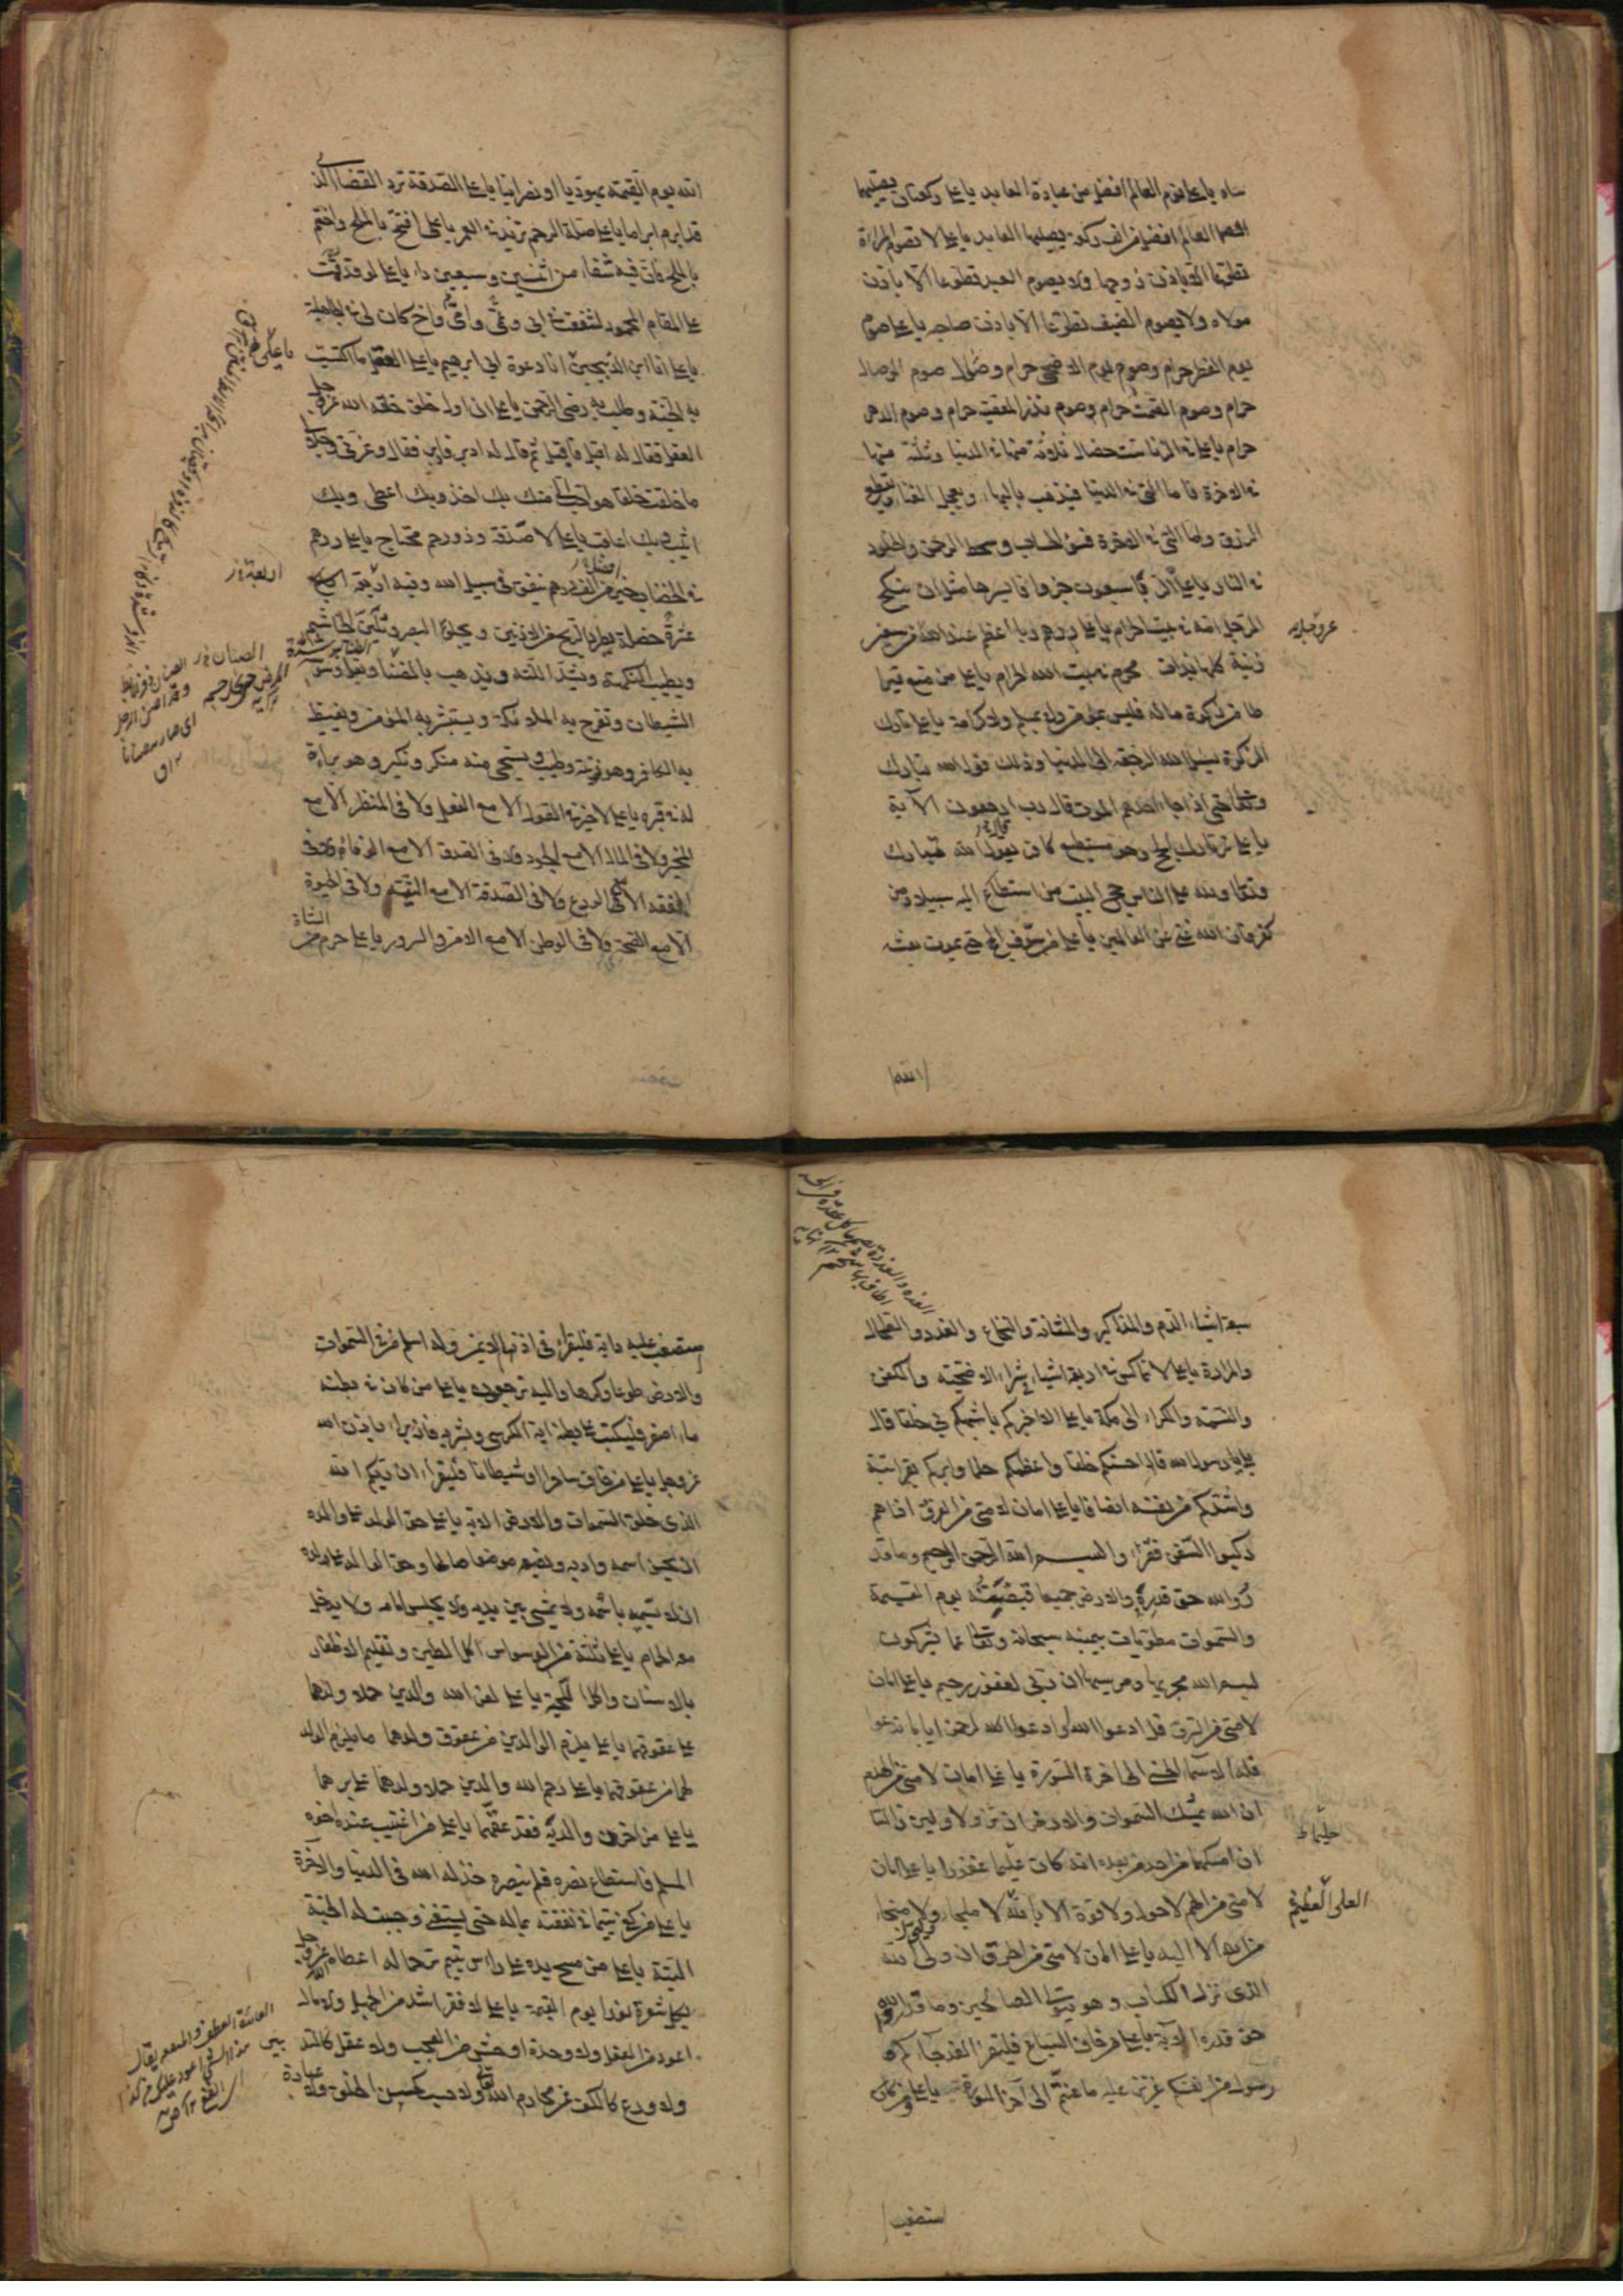 ساه يا علي نوم العالم افضل من عبادة العابد يا علي ركعتان يصليهما
العالم افضل من الف ركعة يصليها العابد يا علي لا تصوم المراة
تطوعا الا باذن زوجها ولا يصوم العبد تطوعا الا باذن
مولاه ولا يصوم الضيف تطوعا الا باذن صاحبه يا علي صوم
يوم الفطر حرام وصوم يوم الاضحى حرام وصوم الوصال
حرام وصوم الصمت حرام وصوم نذر المعصية حرام وصوم الدهر
حرام يا علي في الزنا ست خصال ثلاثة منها في الدنيا وثلثة منها
في الاخرة فاما التي في الدنيا فيذهب بالبهاء ويعجل الفناء ويقطع
الرزق واما التي في الاخرة فسوء الحساب وسخط الرحمن والخلود
في النار يا علي الربا سبعون جزوا فايسرها مثل ان ينكح
الرجل امه في بيت الله الحرام يا علي درهم ربا اعظم عند الله من سبعين
عز وجل
زنية كلها بذات محرم في بيت الله الحرام يا علي من منع قيراطا
من زكوة ماله فليس بمؤمن ولا بمسلم ولا كرامة يا علي تارك
الزكوة يسئل الله الرجعة الى الدنيا وذلك قول الله تبارك
وتعالى حتى اذا جاء احدهم الموت قال رب ارجعون الاية
يا علي تارك الحج وهو مستطيع كافر يقول الله تبارك
وتعالى ولله على الناس حج البيت من استطاع اليه سبيلا ومن
كفر فان الله غني عن العالمين يا علي من سوف الحج حتى يموت بعثه
الله
الله يوم القيمة يهوديا او نصرانيا يا علي الصدقة ترد القضاء الذي
قد ابرم ابراما يا علي صلة الرحم تزيد في العمر يا علي افتتح بالملح واختم
بالملح فان فيه شفاء من اثنين وسبعين داء يا علي لو قد قمت
على المقام المحمود لشفعت في ابي وعمي وامي واخ كان لي في الجاهلية
يا علي انا ابن الذبيحين انا دعوة ابي ابرهيم يا علي العقل ما اكتسبت
به الجنة وطلب به رضى الرحمن يا علي ان اول خلق خلقه الله عز وجل
العقل فقال له اقبل فاقبل ثم قال له ادبر فادبر فقال وعزتي وجلالي
ما خلقت خلقا هو احب الي منك بك اخذ وبك اعطي وبك
اثيب وبك اعاقب يا علي لا صدقة وذو رحم محتاج يا علي درهم
في الخضاب خير من الف درهم ينفق في سبيل الله وفيه اربعة
عشرة خصلة يطرد الريح من الاذنين ويجلو البصر ويلين الخياشيم
ويطيب النكهة ويشد اللثة ويذهب بالضنا ويقل وسوسة
الشيطان وتفرح به الملائكة ويستبشر به المؤمن ويغيظ
به الكافر وهو زينة وطيب ويستحي منه منكر ونكير وهو براءة
له في قبره يا علي لا خير في القول الا مع الفعل ولا في المنظر الا مع
المخبر ولا في المال الا مع الجود ولا في الصدق الا مع الوفاء ولا في
الفقه الا مع الورع ولا في الصدقة الا مع النية ولا في الحيوة
الا مع الصحة ولا في الوطن الا مع الامن والسرور يا علي حرم من
الشاة
سبعة اشياء الدم والمذاكير والمثانة والنخاع والغدد والطحال
والمرارة يا علي لا تماكس في اربعة اشياء في شراء الاضحية والكفن
والنسمة والكراء الى مكة يا علي الا اخبركم باشبهكم بي خلقا قال
بلى يا رسول الله قال احسنكم خلقا واعظمكم حلما وابركم بقرابته
واشدكم من نفسه انصافا يا علي امان لامتي من الغرق اذا هم
ركبوا السفن فقرؤا بسم الله الرحمن الرحيم وما قد
روا الله حق قدره والارض جميعا قبضته يوم القيمة
والسموات مطويات بيمينه سبحانه وتعالى عما يشركون
بسم الله مجريها ومرسيها ان ربي لغفور رحيم يا علي امان
لامتي من السرق قل ادعوا الله او ادعوا الرحمن ايا ما تدعوا
فله الاسماء الحسنى الى اخر السورة يا علي امان لامتي من الهدم
ان الله يمسك السموات والارض ان تزولا ولئن زالتا
ان امسكهما من احد من بعده انه كان حليما غفورا يا علي امان
لامتي من الهم لا حول ولا قوة الا بالله لا ملجاء ولا منجاء
العلي العظيم
من الله الا اليه يا علي امان لامتي من الحرق ان وليي الله
الذي نزل الكتاب وهو يتولى الصالحين وما قدروا الله
حق قدره الاية يا علي من خاف السباع فليقرا لقد جاءكم
رسول من انفسكم عزيز عليه ما عنتم الى اخر السورة يا علي ومن كان
ستصعب
ستصعب عليه دابة فليقرا في اذنها الايمن وله اسلم من في السموات
والارض طوعا وكرها واليه ترجعون يا علي من كان في بطنه
ماء اصفر فليكتب على بطنه اية الكرسي ويشربه فانه يبراء باذن الله
عز وجل يا علي من خاف ساحرا او شيطانا فليقراء ان ربكم الله
الذي خلق السموات والارض الاية يا علي حق الولد على والده
ان يحسن اسمه وادبه ويضعه موضعا صالحا وحق الوالد على ولده
ان لا يسميه باسمه ولا يمشي بين يديه ولا يجلس امامه ولا يدخل
معه الحمام يا علي ثلثة من الوسواس اكل الطين وتقليم الاظفار
بالاسنان واكل اللحية يا علي لعن الله والدين حملا ولدهما
على عقوقهما يا علي يلزم الوالدين من عقوق ولدهما ما يلزم الولد
لهما من عقوقهما يا علي رحم الله والدين حملا ولدهما على برهما
يا علي من احزن والديه فقد عقهما يا علي من اغتيب عنده اخوه
المسلم فاستطاع نصره فلم ينصره خذله الله في الدنيا والاخرة
يا علي من كفى يتيما في نفقته بماله حتى يستغني وجبت له الجنة
البتة يا علي من مسح يده على راس يتيم ترحما له اعطاه الله عز وجل
بكل شعرة نورا يوم القيمة يا علي لا فقر اشد من الجهل ولا مال
اعود من العقل ولا وحدة اوحش من العجب ولا عقل كالتدبير
ولا ورع كالكف عن محارم الله تعالى ولا حسب كحسن الخلق ولا عبادة